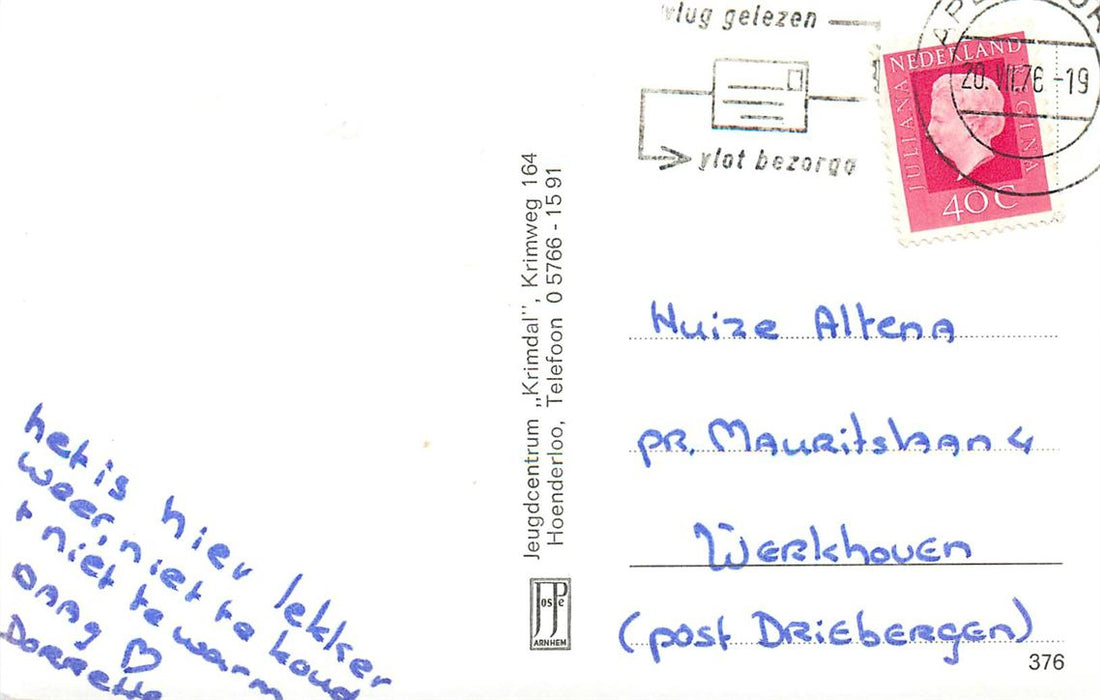 vlug gelezen
vlot bezorgd
APELDOORN
20.VII.76-19
NEDERLAND
JULIANA REGINA
40 C
Huize Altena
pr. Mauritslaan 4
Werkhoven
(post Driebergen)
376
Jeugdcentrum „Krimdal", Krimweg 164
Hoenderloo, Telefoon 0 5766 - 15 91
JosPe
ARNHEM
het is hier lekker
weer, niet te koud
+ niet te warm
DAAg ♡
Dorrette